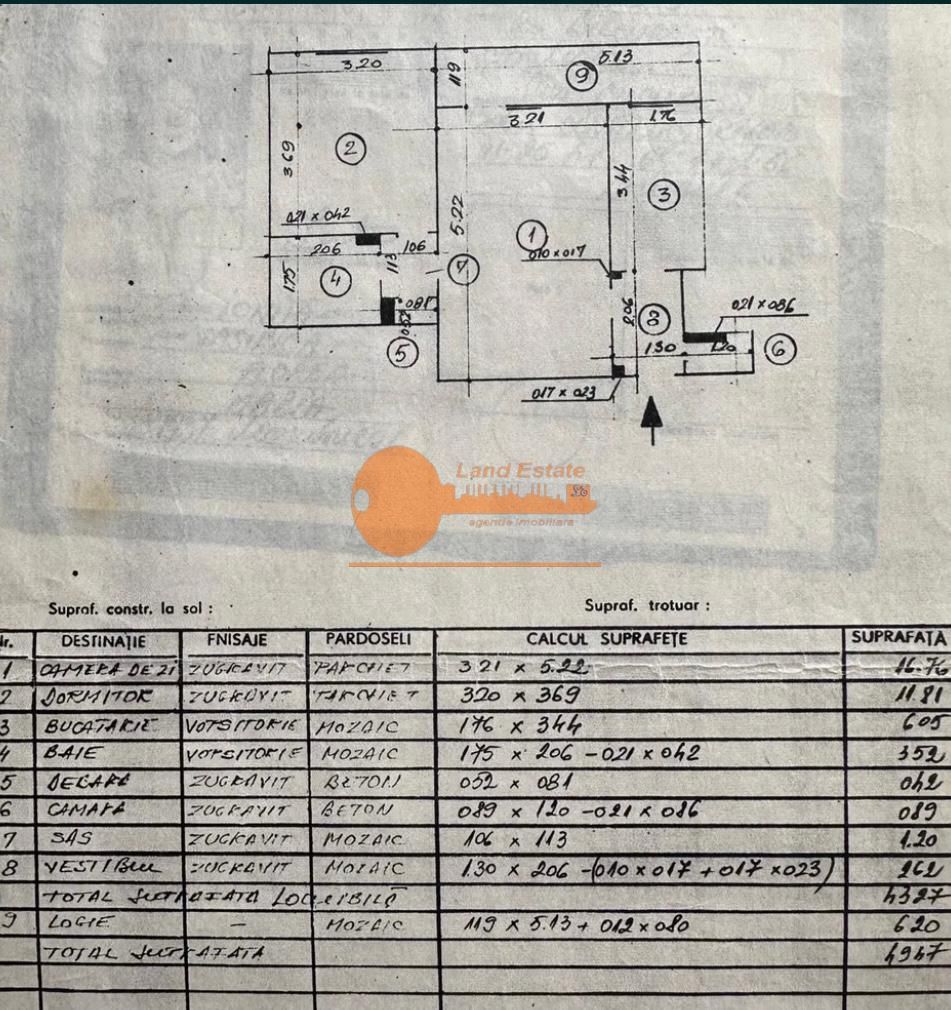 3.20
119
5.13
9
3.21
1.76
2
3 69
3 44
3
021 x 042
5.22
1
206
106
010 x 017
113
7
175
4
081
052
2.06
8
021 x 086
5
130
120
6
017 x 023
Land Estate
agentie imobiliara
Supraf. constr. la sol :
Supraf. trotuar :
Nr. DESTINAȚIE FNISAJE PARDOSELI CALCUL SUPRAFEȚE SUPRAFAȚA
1 CAMERA DE ZI ZUGRAVIT PARCHET 3 21 x 5.22 16.76
2 DORMITOR ZUGRAVIT PARCHET 320 x 369 11.81
3 BUCATARIE VOPSITORIE MOZAIC 176 x 344 605
4 BAIE VOPSITORIE MOZAIC 175 x 206 - 021 x 042 352
5 DEGAJ ZUGRAVIT BETON 052 x 081 042
6 CAMARA ZUGRAVIT BETON 089 x 120 - 021 x 086 089
7 SAS ZUGRAVIT MOZAIC 106 x 113 1.20
8 VESTIBUL ZUGRAVIT MOZAIC 1.30 x 206 - (010 x 017 + 017 x 023) 262
TOTAL SUPRAFATA LOCUIBILĂ 4327
9 LOGIE — MOZAIC 119 x 5.13 + 012 x 080 620
TOTAL SUPRAFATA 4947